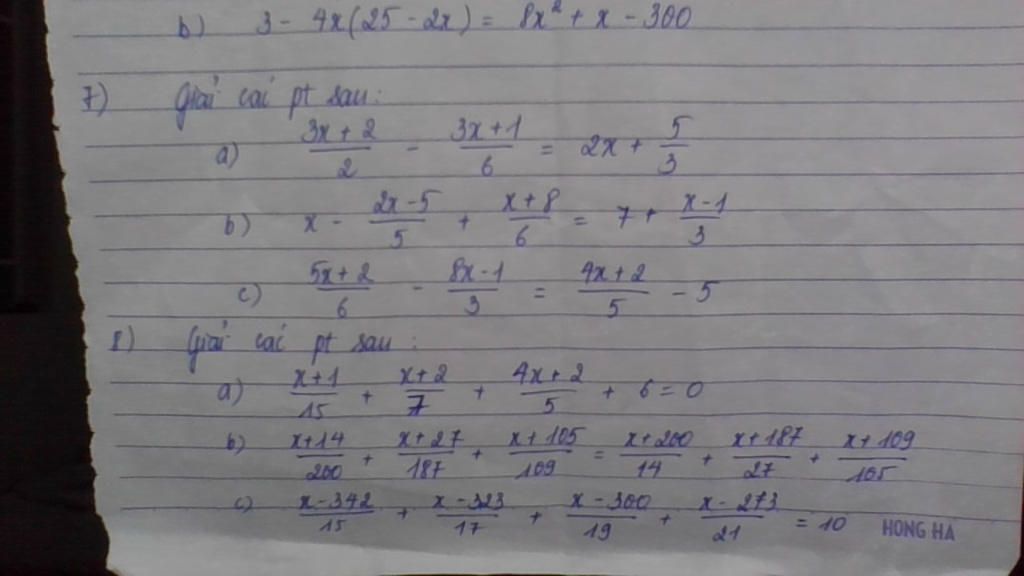 b) 3 - 4x(25 - 2x) = 8x² + x - 300
7) Giải các pt sau:
a) (3x + 2)/2 - (3x + 1)/6 = 2x + 5/3
b) x - (2x - 5)/5 + (x + 8)/6 = 7 + (x - 1)/3
c) (5x + 2)/6 - (8x - 1)/3 = (4x + 2)/5 - 5
8) Giải các pt sau:
a) (x + 1)/15 + (x + 2)/7 + (4x + 2)/5 + 6 = 0
b) (x + 14)/200 + (x + 27)/187 + (x + 105)/109 = (x + 200)/14 + (x + 187)/27 + (x + 109)/105
c) (x - 342)/15 + (x - 323)/17 + (x - 300)/19 + (x - 273)/21 = 10
HONG HA